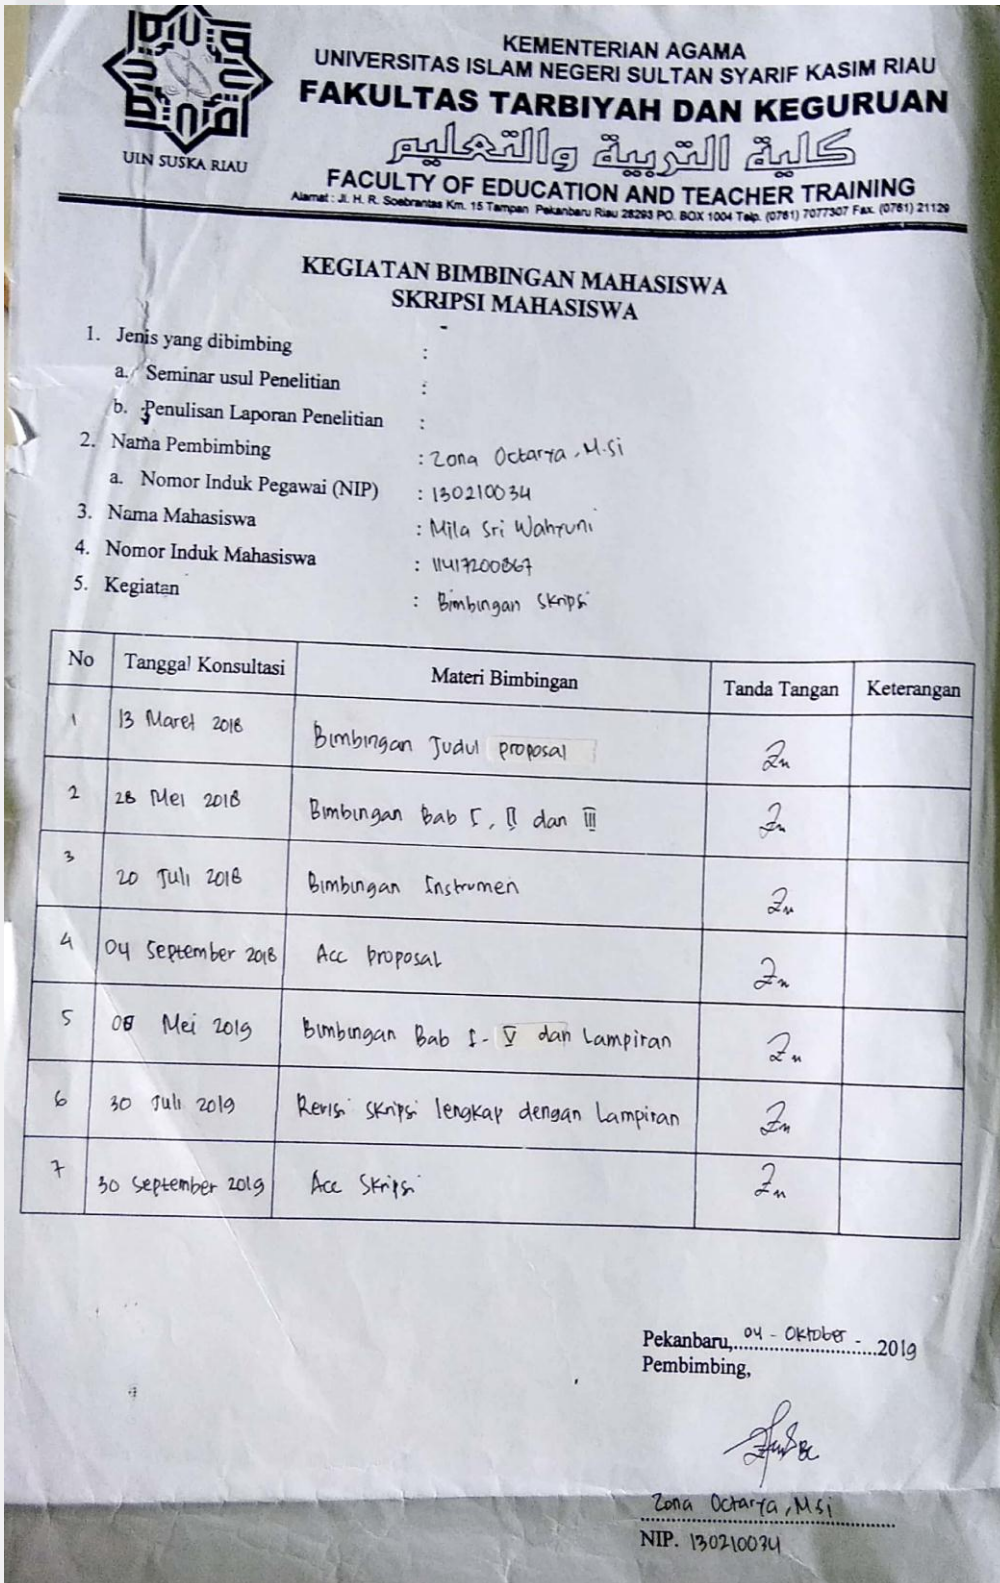 UIN SUSKA RIAU
KEMENTERIAN AGAMA
UNIVERSITAS ISLAM NEGERI SULTAN SYARIF KASIM RIAU
FAKULTAS TARBIYAH DAN KEGURUAN
كلية التربية والتعليم
FACULTY OF EDUCATION AND TEACHER TRAINING
Alamat : Jl. H. R. Soebrantas Km. 15 Tampan Pekanbaru Riau 28293 PO. BOX 1004 Telp. (0761) 7077307 Fax. (0761) 21129
KEGIATAN BIMBINGAN MAHASISWA
SKRIPSI MAHASISWA
1. Jenis yang dibimbing :
a. Seminar usul Penelitian :
b. Penulisan Laporan Penelitian :
2. Nama Pembimbing : Zona Octarya, M.Si
a. Nomor Induk Pegawai (NIP) : 130210034
3. Nama Mahasiswa : Mila Sri Wahyuni
4. Nomor Induk Mahasiswa : 11417200867
5. Kegiatan : Bimbingan Skripsi
No Tanggal Konsultasi Materi Bimbingan Tanda Tangan Keterangan
1 13 Maret 2018 Bimbingan Judul proposal
2 28 Mei 2018 Bimbingan Bab I, II dan III
3 20 Juli 2018 Bimbingan Instrumen
4 04 September 2018 Acc proposal
5 08 Mei 2019 Bimbingan Bab I - V dan Lampiran
6 30 Juli 2019 Revisi skripsi lengkap dengan Lampiran
7 30 September 2019 Acc Skripsi
Pekanbaru, 04 - Oktober - 2019
Pembimbing,
Zona Octarya, MSi
NIP. 130210034